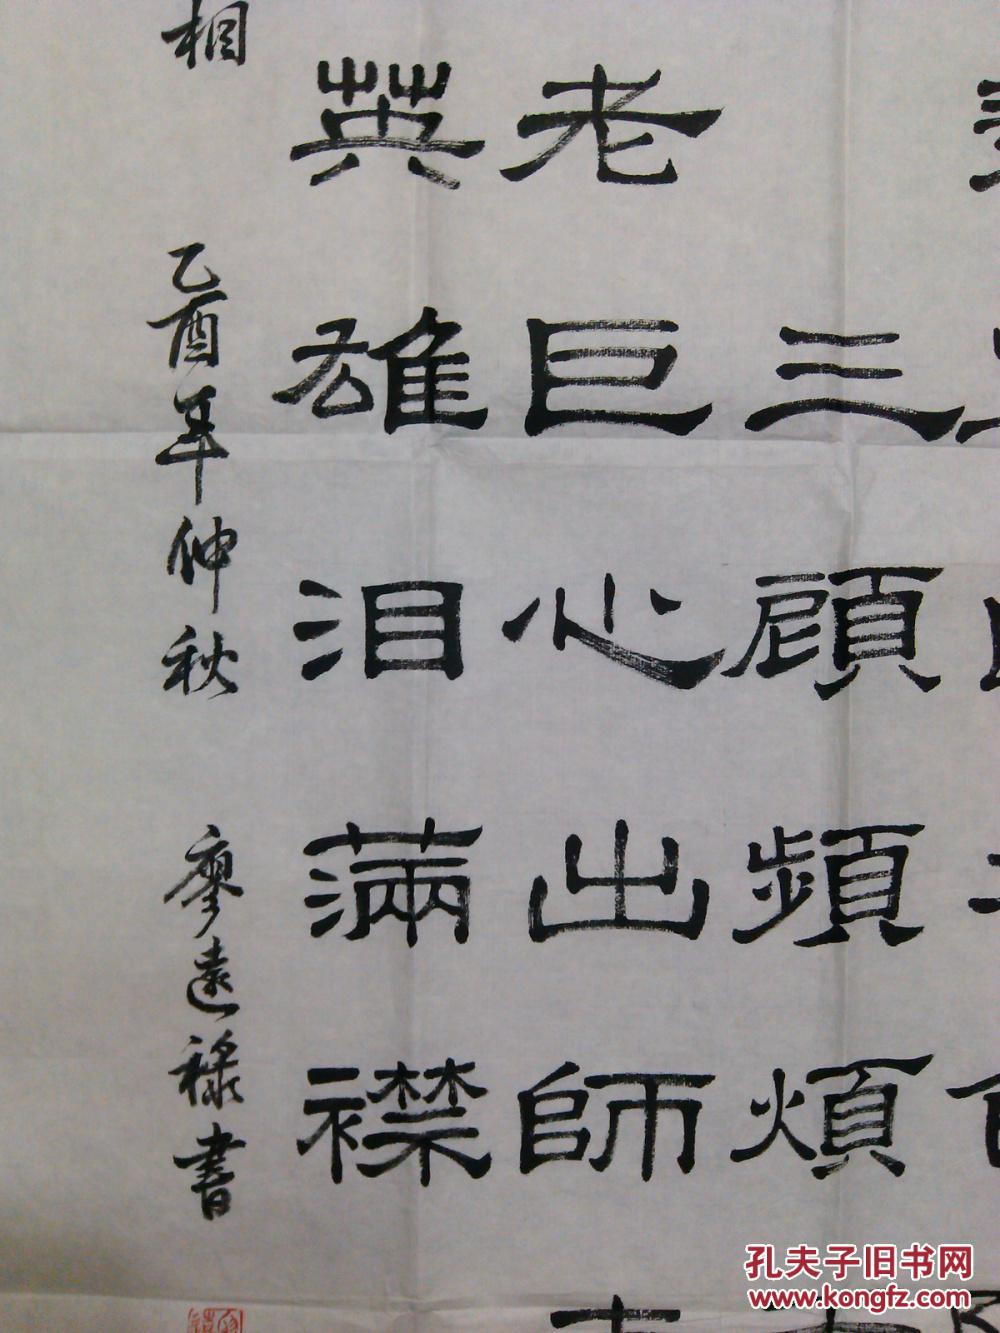 三顧頻煩
老巨心出師
英雄泪滿襟
相
乙酉年仲秋
廖遠祿書
孔夫子旧书网
www.kongfz.com